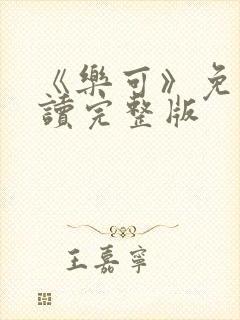 《樂可》免
讀完整版
王嘉寧